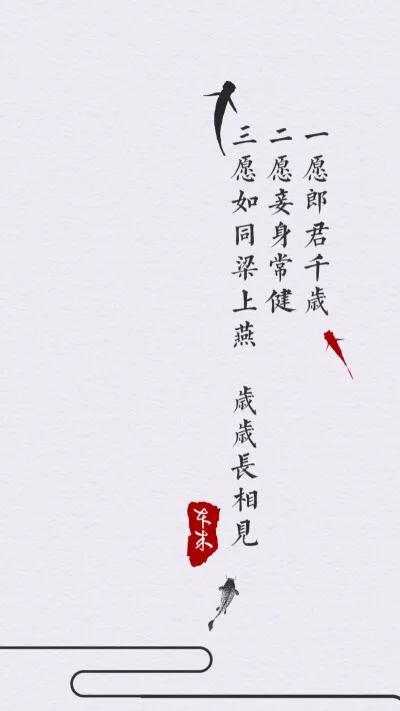 一愿郎君千歳
二愿妾身常健
三愿如同梁上燕　歳歳長相見